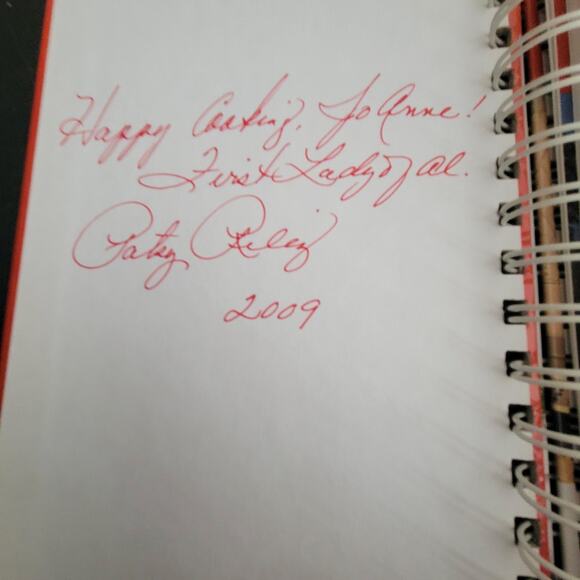 Happy Cooking, Jo Anne!
First Lady of Al.
Patsy Riley
2009